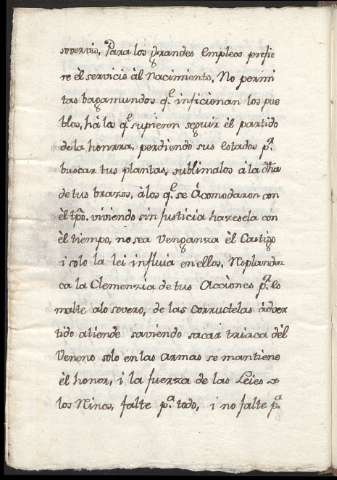 sovervio, Para los grandes empleos prefie
re el servicio al Nacimiento, No permi
tas bagamundos q.^e inficionan los pue
blos, há los q.^e supieron seguir el partido
de la honrra, perdiendo sus estados p.^r
buscar tus plantas, sublimalos à la dha
de tus brazos, à los q.^e se Acomodaron con
el tpo. viviendo sin justicia haresela con
èl tiempo, no sea Venganza el Castigo
i solo la lei influia en ellos, Resplandez
ca la Clemenzia de tus Acciones p.^a lo
malte alo severo, de las corruptelas àdver
tido atiende saviendo sacar triaca dél
Veneno solo en las armas se mantiene
èl honor, i la fuerza de las Leies
los Ninos, falte p.^a todo, i no falte p.^a